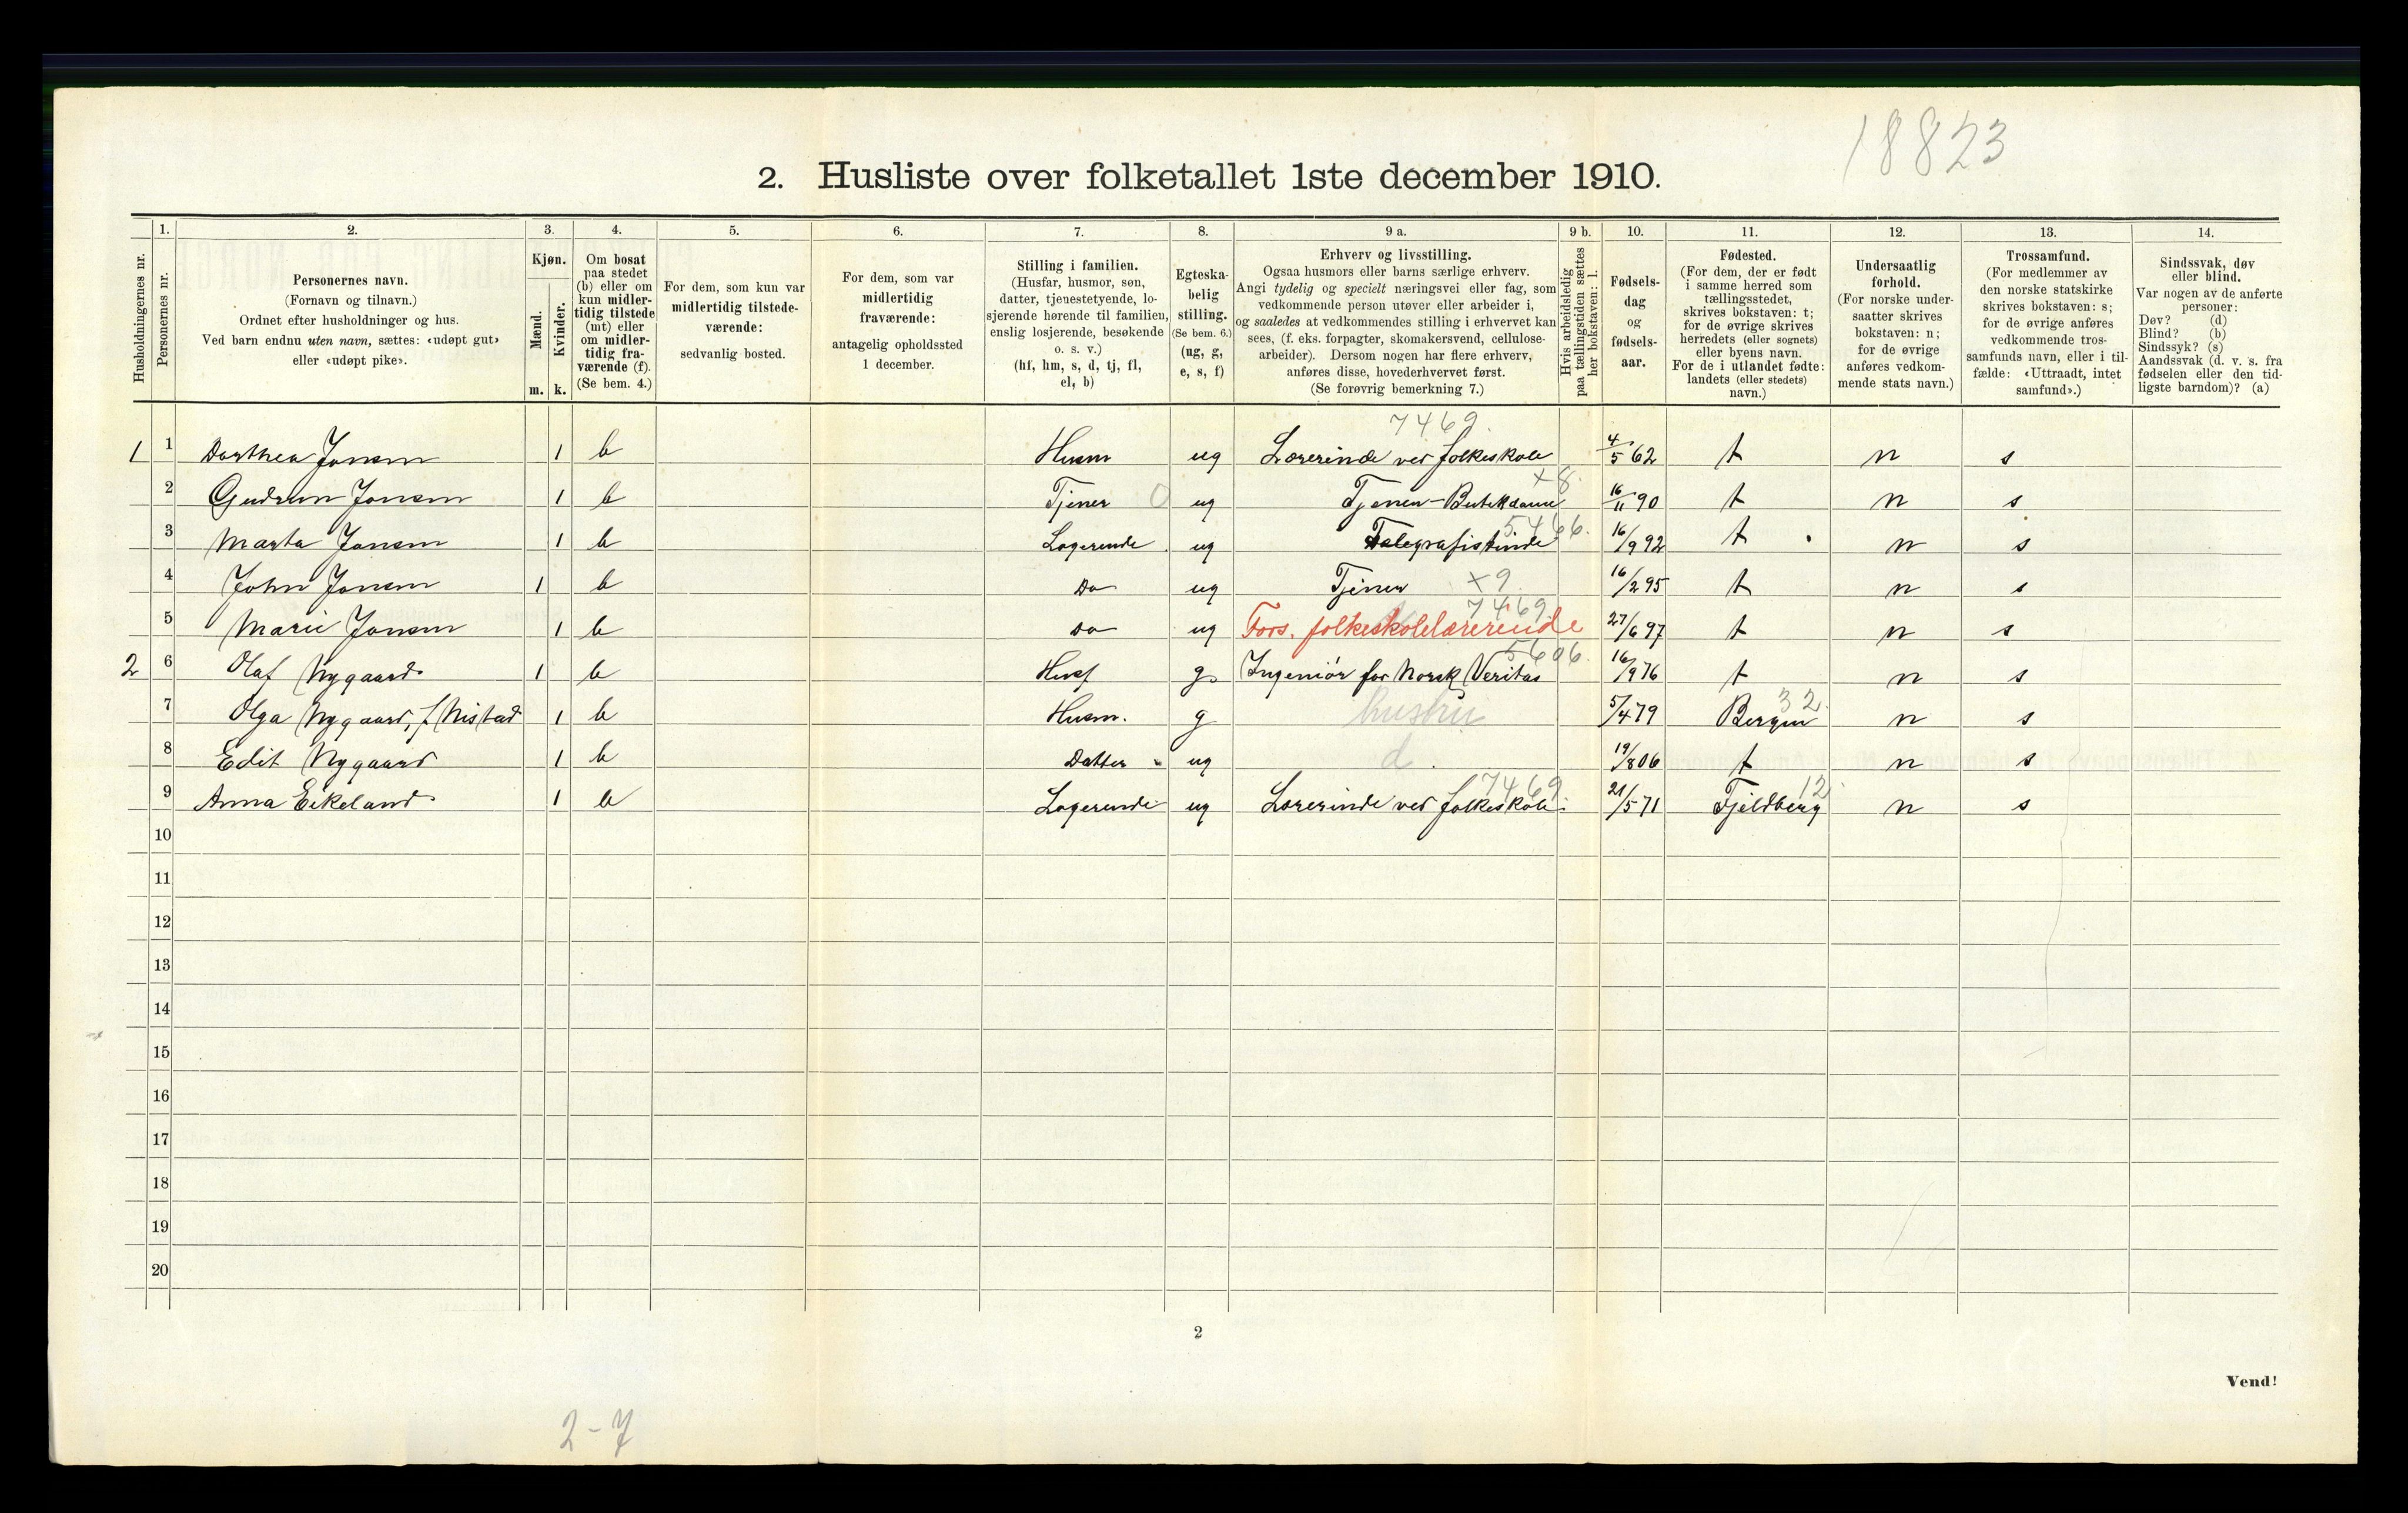 18823
2. Husliste over folketallet 1ste december 1910.
Husholdningernes nr.
1.
Personernes nr.
2.
Personernes navn.
(Fornavn og tilnavn.)
Ordnet efter husholdninger og hus.
Ved barn endnu uten navn, sættes: «udøpt gut»
eller «udøpt pike».
3.
Kjøn.
Mænd.
m.
Kvinder.
k.
4.
Om bosat
paa stedet
(b) eller om
kun midler-
tidig tilstede
(mt) eller
om midler-
tidig fra-
værende (f).
(Se bem. 4.)
5.
For dem, som kun var
midlertidig tilstede-
værende:
sedvanlig bosted.
6.
For dem, som var
midlertidig
fraværende:
antagelig opholdssted
1 december.
7.
Stilling i familien.
(Husfar, husmor, søn,
datter, tjenestetyende, lo-
sjerende hørende til familien,
enslig losjerende, besøkende
o. s. v.)
(hf, hm, s, d, tj, fl,
el, b)
8.
Egteska-
belig
stilling.
(Se bem. 6.)
(ug, g,
e, s, f)
9 a.
Erhverv og livsstilling.
Ogsaa husmors eller barns særlige erhverv.
Angi tydelig og specielt næringsvei eller fag, som
vedkommende person utøver eller arbeider i,
og saaledes at vedkommendes stilling i erhvervet kan
sees, (f. eks. forpagter, skomakersvend, cellulose-
arbeider). Dersom nogen har flere erhverv,
anføres disse, hovederhvervet først.
(Se forøvrig bemerkning 7.)
9 b.
Hvis arbeidsledig
paa tællingstiden sættes
her bokstaven: l.
10.
Fødsels-
dag
og
fødsels-
aar.
11.
Fødested.
(For dem, der er født
i samme herred som
tællingsstedet,
skrives bokstaven: t;
for de øvrige skrives
herredets (eller sognets)
eller byens navn.
For de i utlandet fødte:
landets (eller stedets)
navn.)
12.
Undersaatlig
forhold.
(For norske under-
saatter skrives
bokstaven: n;
for de øvrige
anføres vedkom-
mende stats navn.)
13.
Trossamfund.
(For medlemmer av
den norske statskirke
skrives bokstaven: s;
for de øvrige anføres
vedkommende tros-
samfunds navn, eller i til-
fælde: «Uttraadt, intet
samfund».)
14.
Sindssvak, døv
eller blind.
Var nogen av de anførte
personer:
Døv? (d)
Blind? (b)
Sindssyk? (s)
Aandssvak (d. v. s. fra
fødselen eller den tid-
ligste barndom)? (a)
7469
1 1 Dorthea Jonsen 1 b Husm ug Lærerinde ved folkeskole 4/5 62 t n s
x8
2 Gudrun Jonsen 1 b Tjener 0 ug Tjener-Butikdame 16/11 90 t n s
5466
3 Marta Jonsen 1 b Logerende ug Telegrafistinde 16/9 92 t n s
4 John Jonsen 1 b Do ug Tjener x9 16/2 95 t n s
7469
5 Marie Jonsen 1 b Do ug Fors. folkeskolelærerinde 27/6 97 t n s
5606
2 6 Olaf Nygaard 1 b Husf g Ingeniør for Norsk Veritas 16/9 76 t n s
32
7 Olga Nygaard, f Nistad 1 b Husm. g hustru 5/4 79 Bergen n s
8 Edit Nygaard 1 b Datter ug d 19/8 06 t n s
7469 12
9 Anna Eikeland 1 b Logerende ug Lærerinde ved folkeskole 21/5 71 Fjeldberg n s
10
11
12
13
14
15
16
17
18
19
20
2
Vend!
2-7